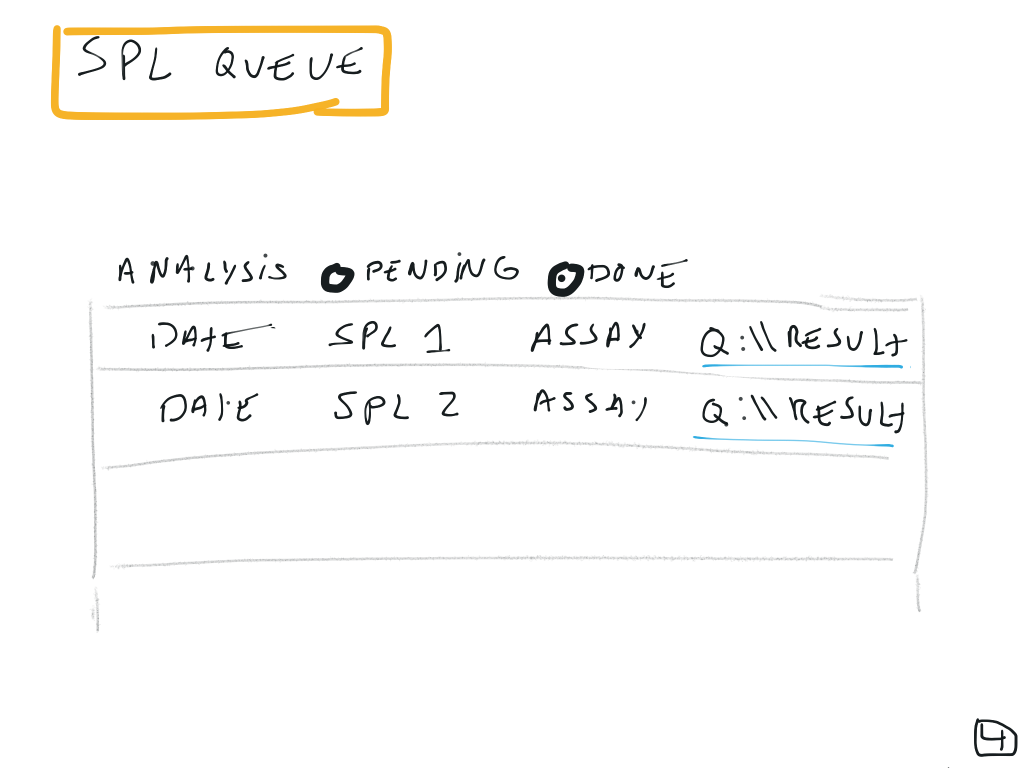 SPL QUEUE
ANALYSIS PENDING DONE
DATE SPL 1 ASSAY Q:\\RESULT
DATE SPL 2 ASSAY Q:\\RESULT
4